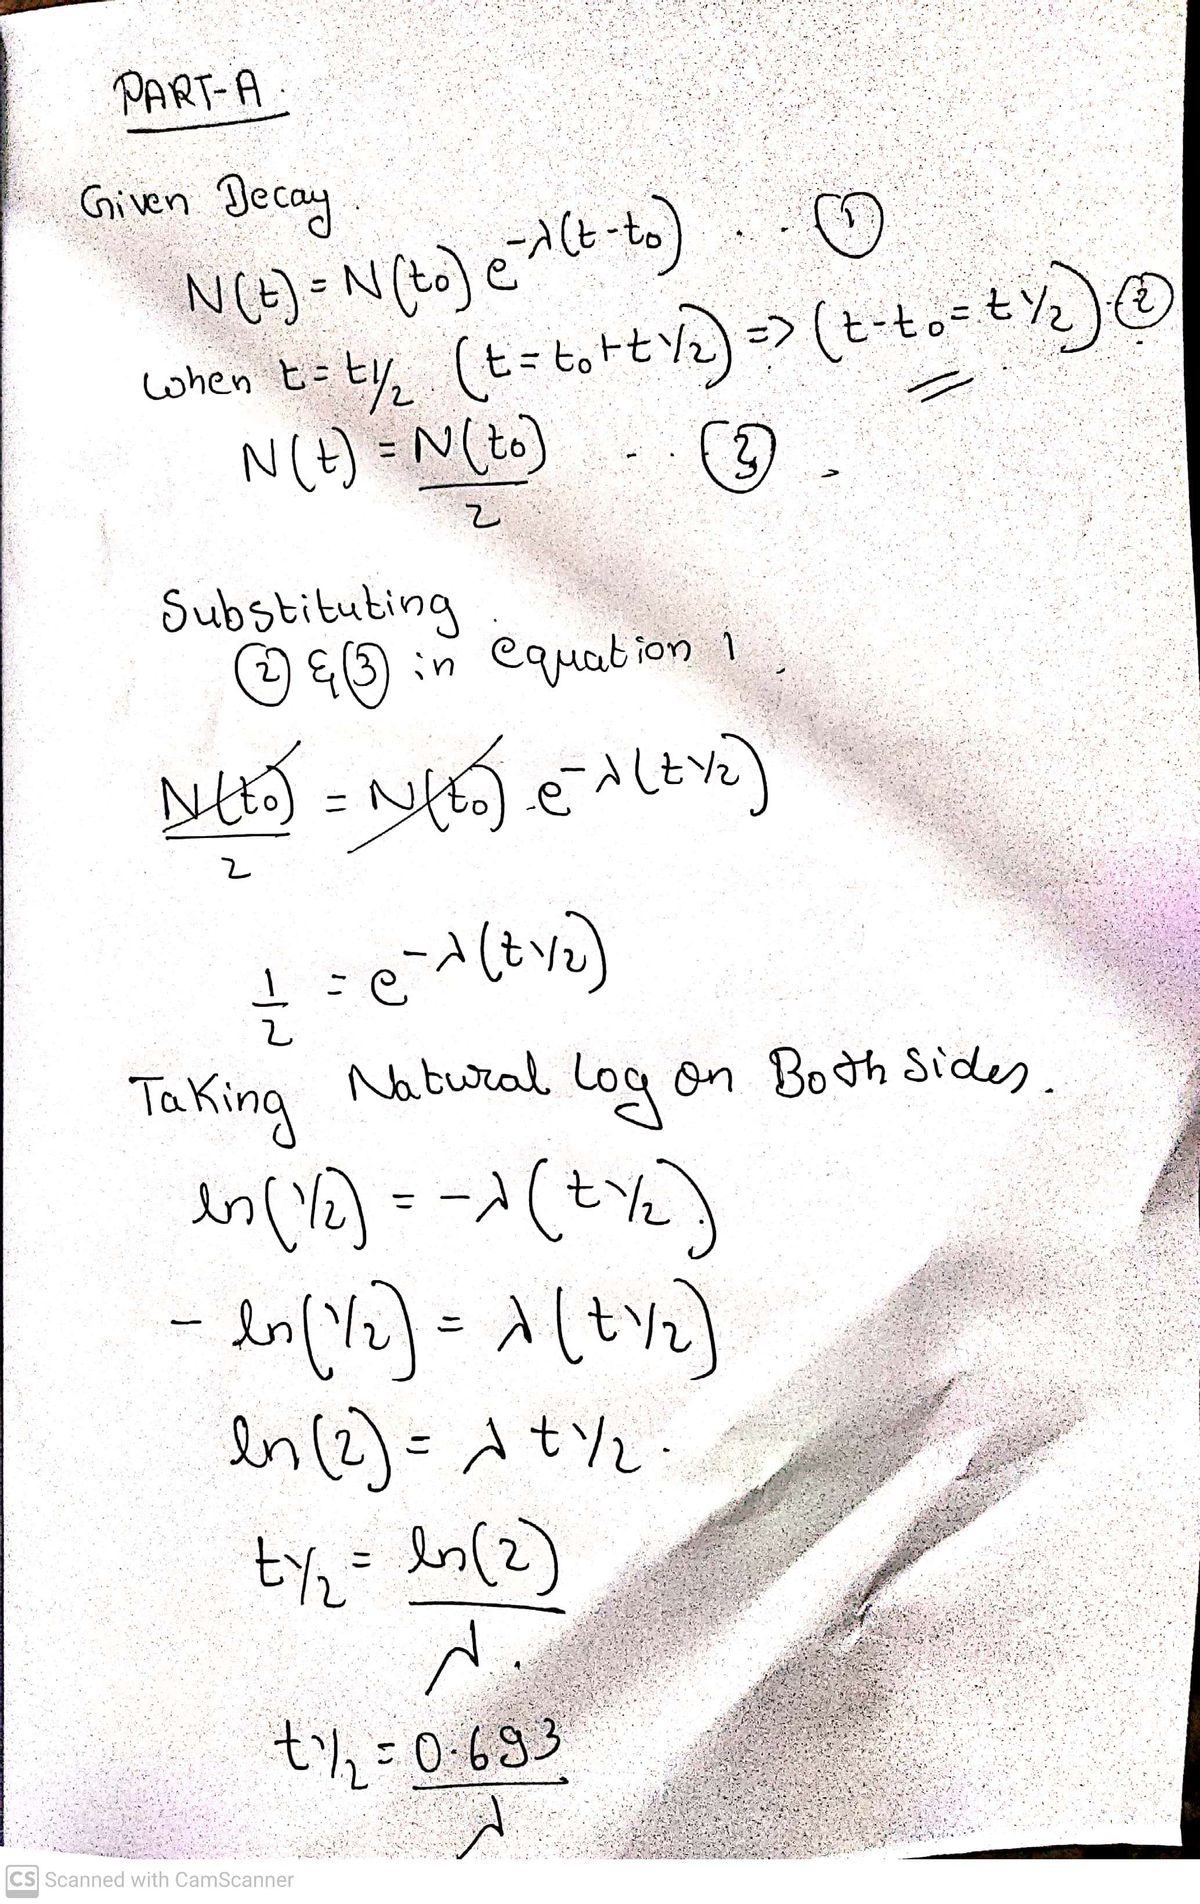 PART-A.
Given Decay.
N(t) = N(t₀) e^-λ(t-t₀) ... ①
When t = t½ (t = t₀+t½) => (t-t₀ = t½) ②
N(t) = N(t₀)/2 ... ③.
Substituting
② & ③ in equation 1.
N(t₀)/2 = N(t₀) . e^-λ(t½)
1/2 = e^-λ(t½)
Taking Natural Log on Both Sides.
ln(½) = -λ(t½).
- ln(½) = λ(t½)
ln(2) = λ t½.
t½ = ln(2)/λ.
t½ = 0.693/λ
CS Scanned with CamScanner